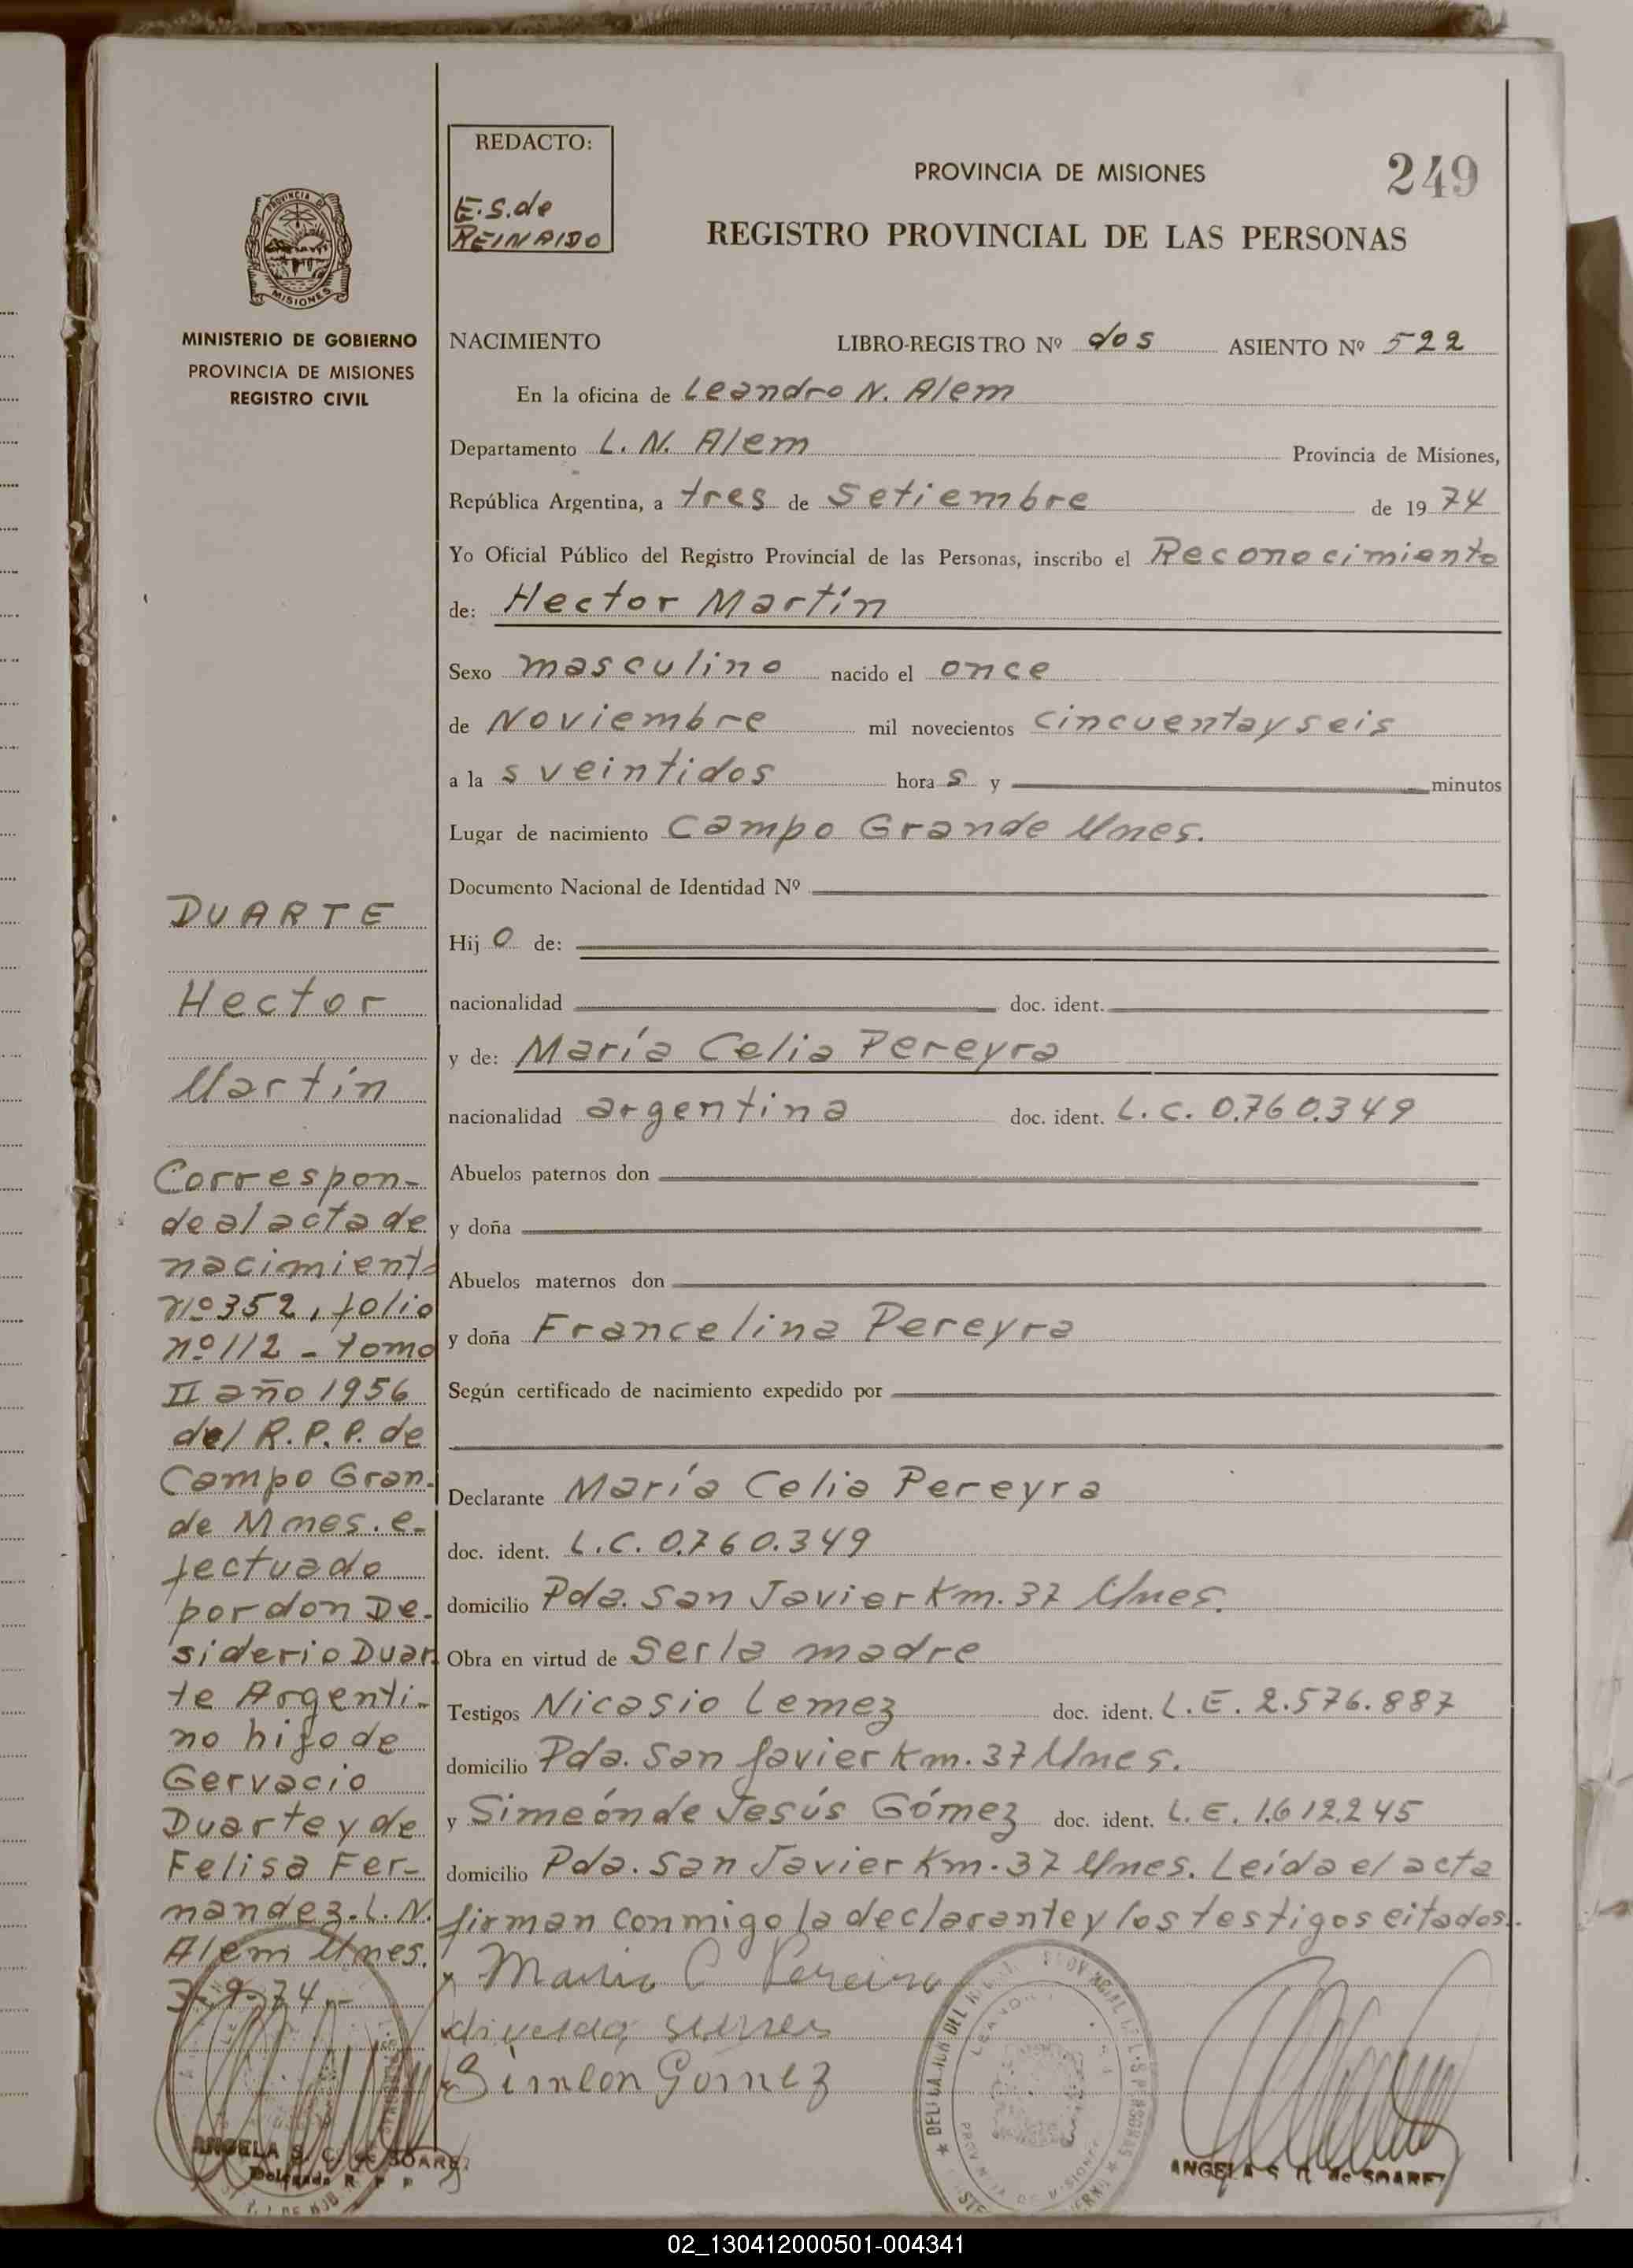 REDACTO:
E.S.de
REINAIDO
PROVINCIA DE MISIONES
249
REGISTRO PROVINCIAL DE LAS PERSONAS
PROVINCIA D
MISIONES
MINISTERIO DE GOBIERNO
PROVINCIA DE MISIONES
REGISTRO CIVIL
NACIMIENTO LIBRO-REGISTRO Nº dos ASIENTO Nº 522
En la oficina de Leandro N. Alem
Departamento L. N. Alem Provincia de Misiones,
República Argentina, a tres de Setiembre de 1974
Yo Oficial Público del Registro Provincial de las Personas, inscribo el Reconocimiento
de: Hector Martín
Sexo masculino nacido el once
de Noviembre mil novecientos cincuentayseis
a las veintidos horas y minutos
Lugar de nacimiento Campo Grande Mnes.
Documento Nacional de Identidad Nº
Hijo de:
nacionalidad doc. ident.
y de: María Celia Pereyra
nacionalidad argentina doc. ident. L.C. 0.760.349
Abuelos paternos don
y doña
Abuelos maternos don
y doña Francelina Pereyra
Según certificado de nacimiento expedido por
Declarante María Celia Pereyra
doc. ident. L.C. 0.760.349
domicilio Pda. San Javier Km. 37 Mnes.
Obra en virtud de ser la madre
Testigos Nicasio Lemez doc. ident. L.E. 2.576.887
domicilio Pda. San Javier Km. 37 Mnes.
y Simeón de Jesús Gómez doc. ident. L.E. 1.612.245
domicilio Pda. San Javier Km. 37 Mnes. Leída el acta
firman conmigo la declarante y los testigos citados.
Maria C Pereira
Simeon Gomez
ANGELA S. C. de SOAREZ
DUARTE
Hector
Martín
Correspon-
de al acta de
nacimiento
nº 352, folio
nº 112 - tomo
II año 1956
del R.P.P. de
Campo Gran-
de Mnes. e-
fectuado
por don De-
siderio Duar
te Argenti-
no hijo de
Gervacio
Duarte y de
Felisa Fer-
nandez. L. N.
Alem Mnes.
3-9-74.-
ANGELA S. C. de SOAREZ
Delegada R P P
02_130412000501-004341